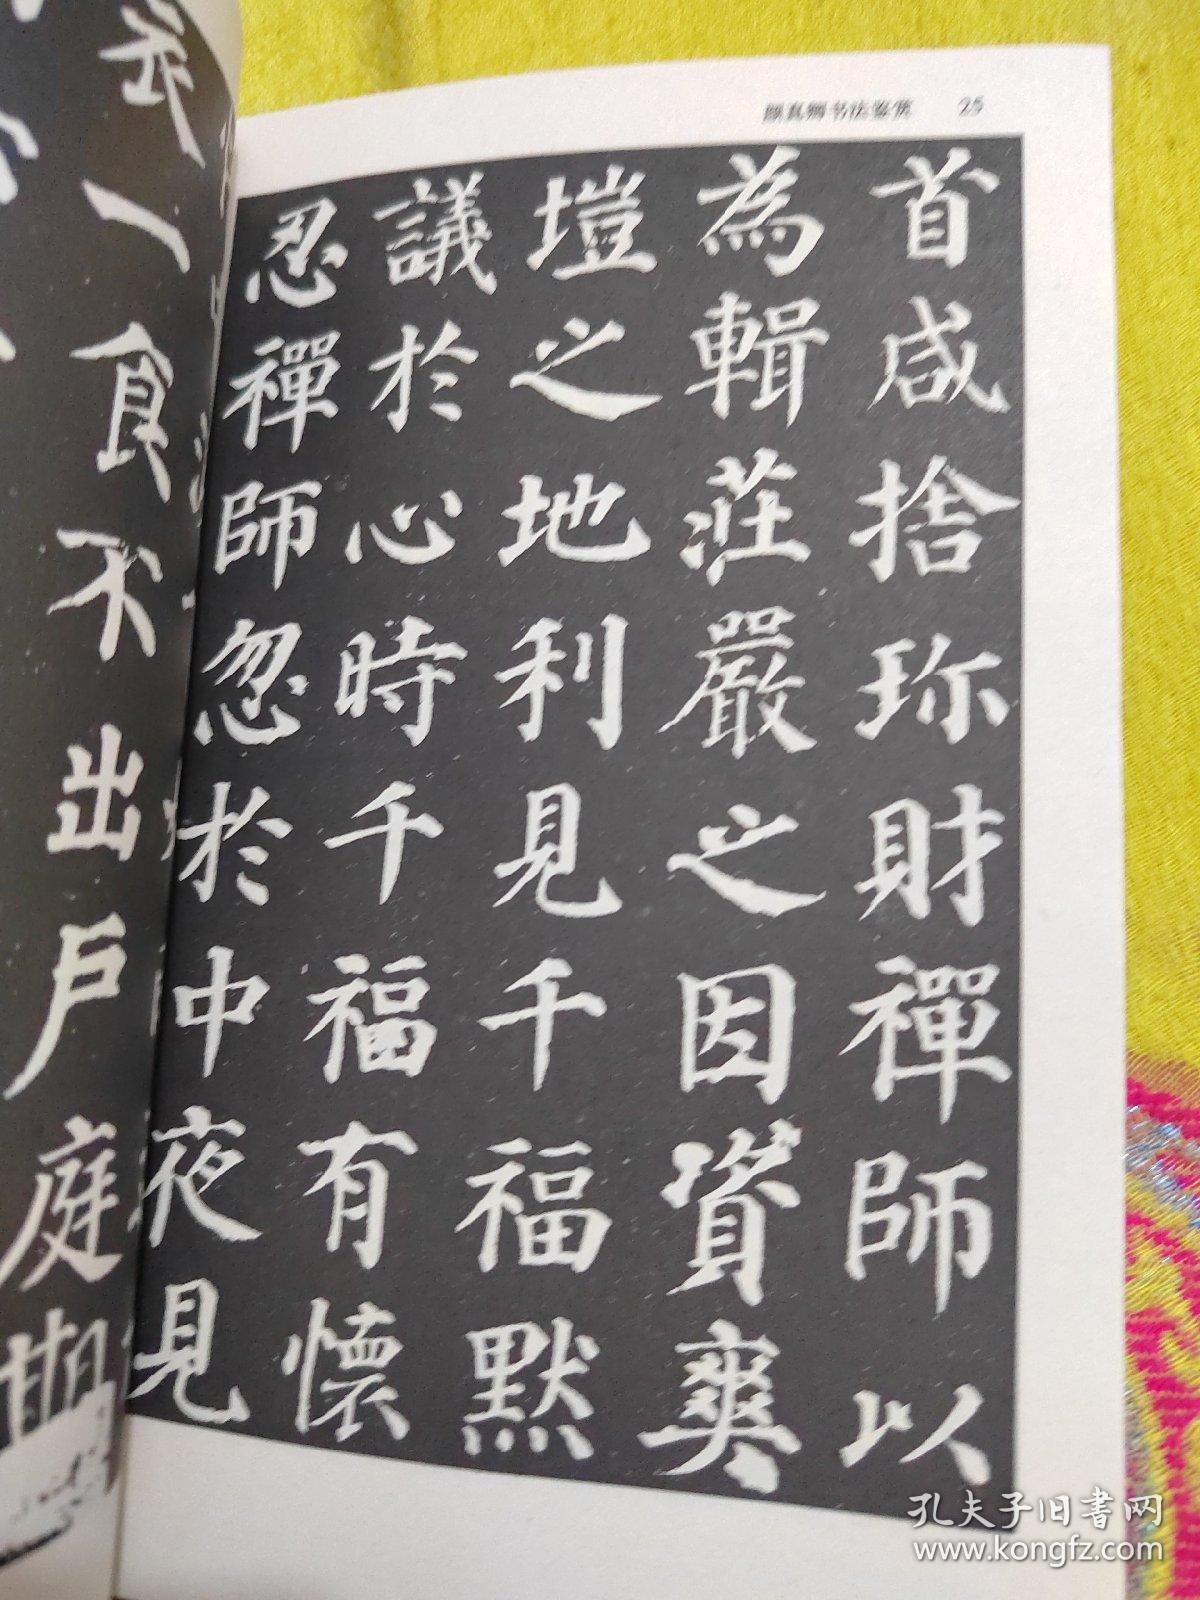 颜真卿书法鉴赏 25
首咸捨珎財禪師以
為輯莊嚴之因資爽
塏之地利見千福默
議於心時千福有懷
忍禪師忽於中夜見
一食不出戶庭期
孔夫子旧書网
www.kongfz.com